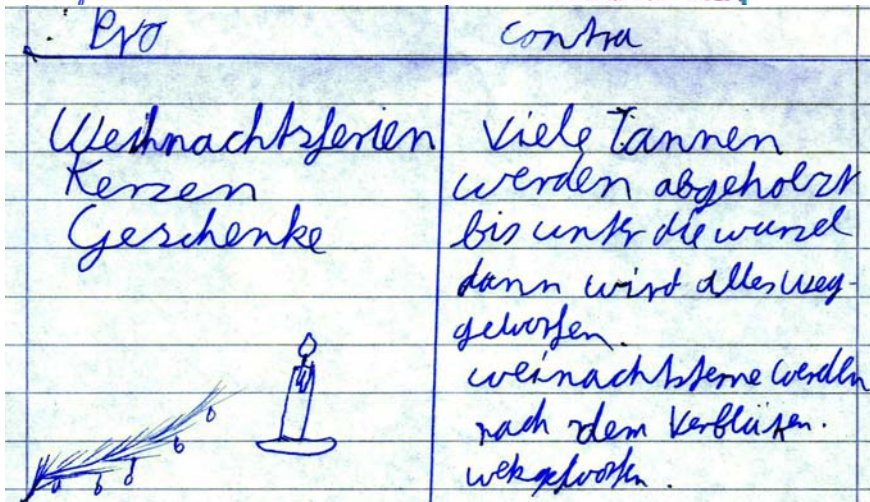 Pro
contra
Weihnachtsferien
Kerzen
Geschenke
Viele Tannen
werden abgeholzt
bis unter die wurzel
dann wird alles weg-
geworfen.
weinachtsterne werden
nach dem Verblüten.
wekgeworfen.